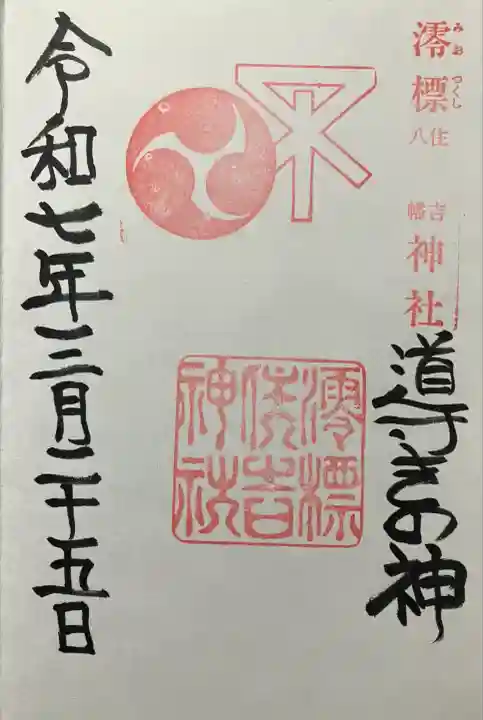 澪標住吉八幡神社
みおつくし
導きの神
澪標
住吉
神社
令和七年三月二十五日